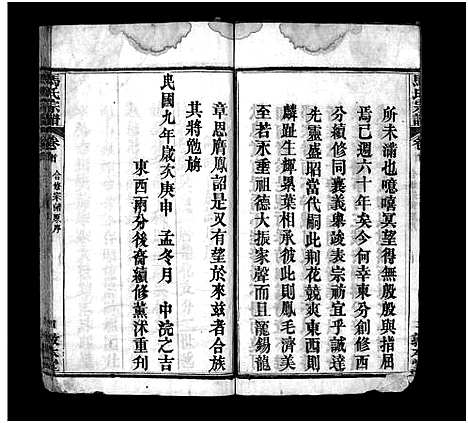 所未滿也噫嘻冥望得無殷殷與指屈
焉已週六十年矣今何幸東分創修西
分續修同襄義舉竣表宗祊宜乎誠達
先靈盛昭當代嗣此荆花競爽東西則
麟趾生輝累葉相承彼此則鳳毛濟美
至若永垂祖德大振家聲而且寵錫龍
章恩膺鳳詔是又有望於來兹者合族
其將勉旃
民國九年歲次庚申 孟冬月 中浣之吉
東西兩分後裔續修薰沐重刋
馬氏宗譜
卷首 合修宗譜原序
敦本堂